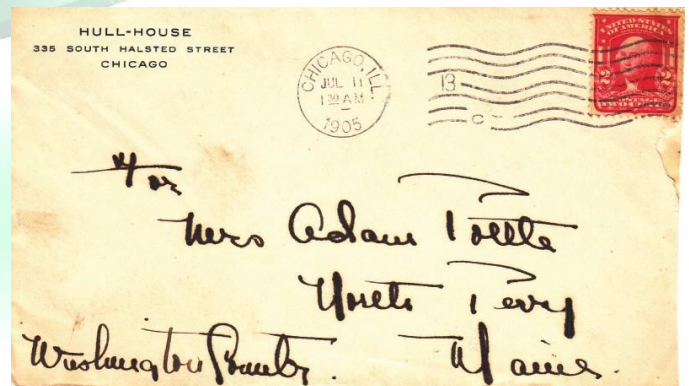 HULL-HOUSE
335 SOUTH HALSTED STREET
CHICAGO
CHICAGO, ILL.
JUL 11
1 30 AM
1905
13
C
UNITED STATES
OF AMERICA
2 2
TWO CENTS
For
Mrs Adam
North Perry
Washington County. Maine.